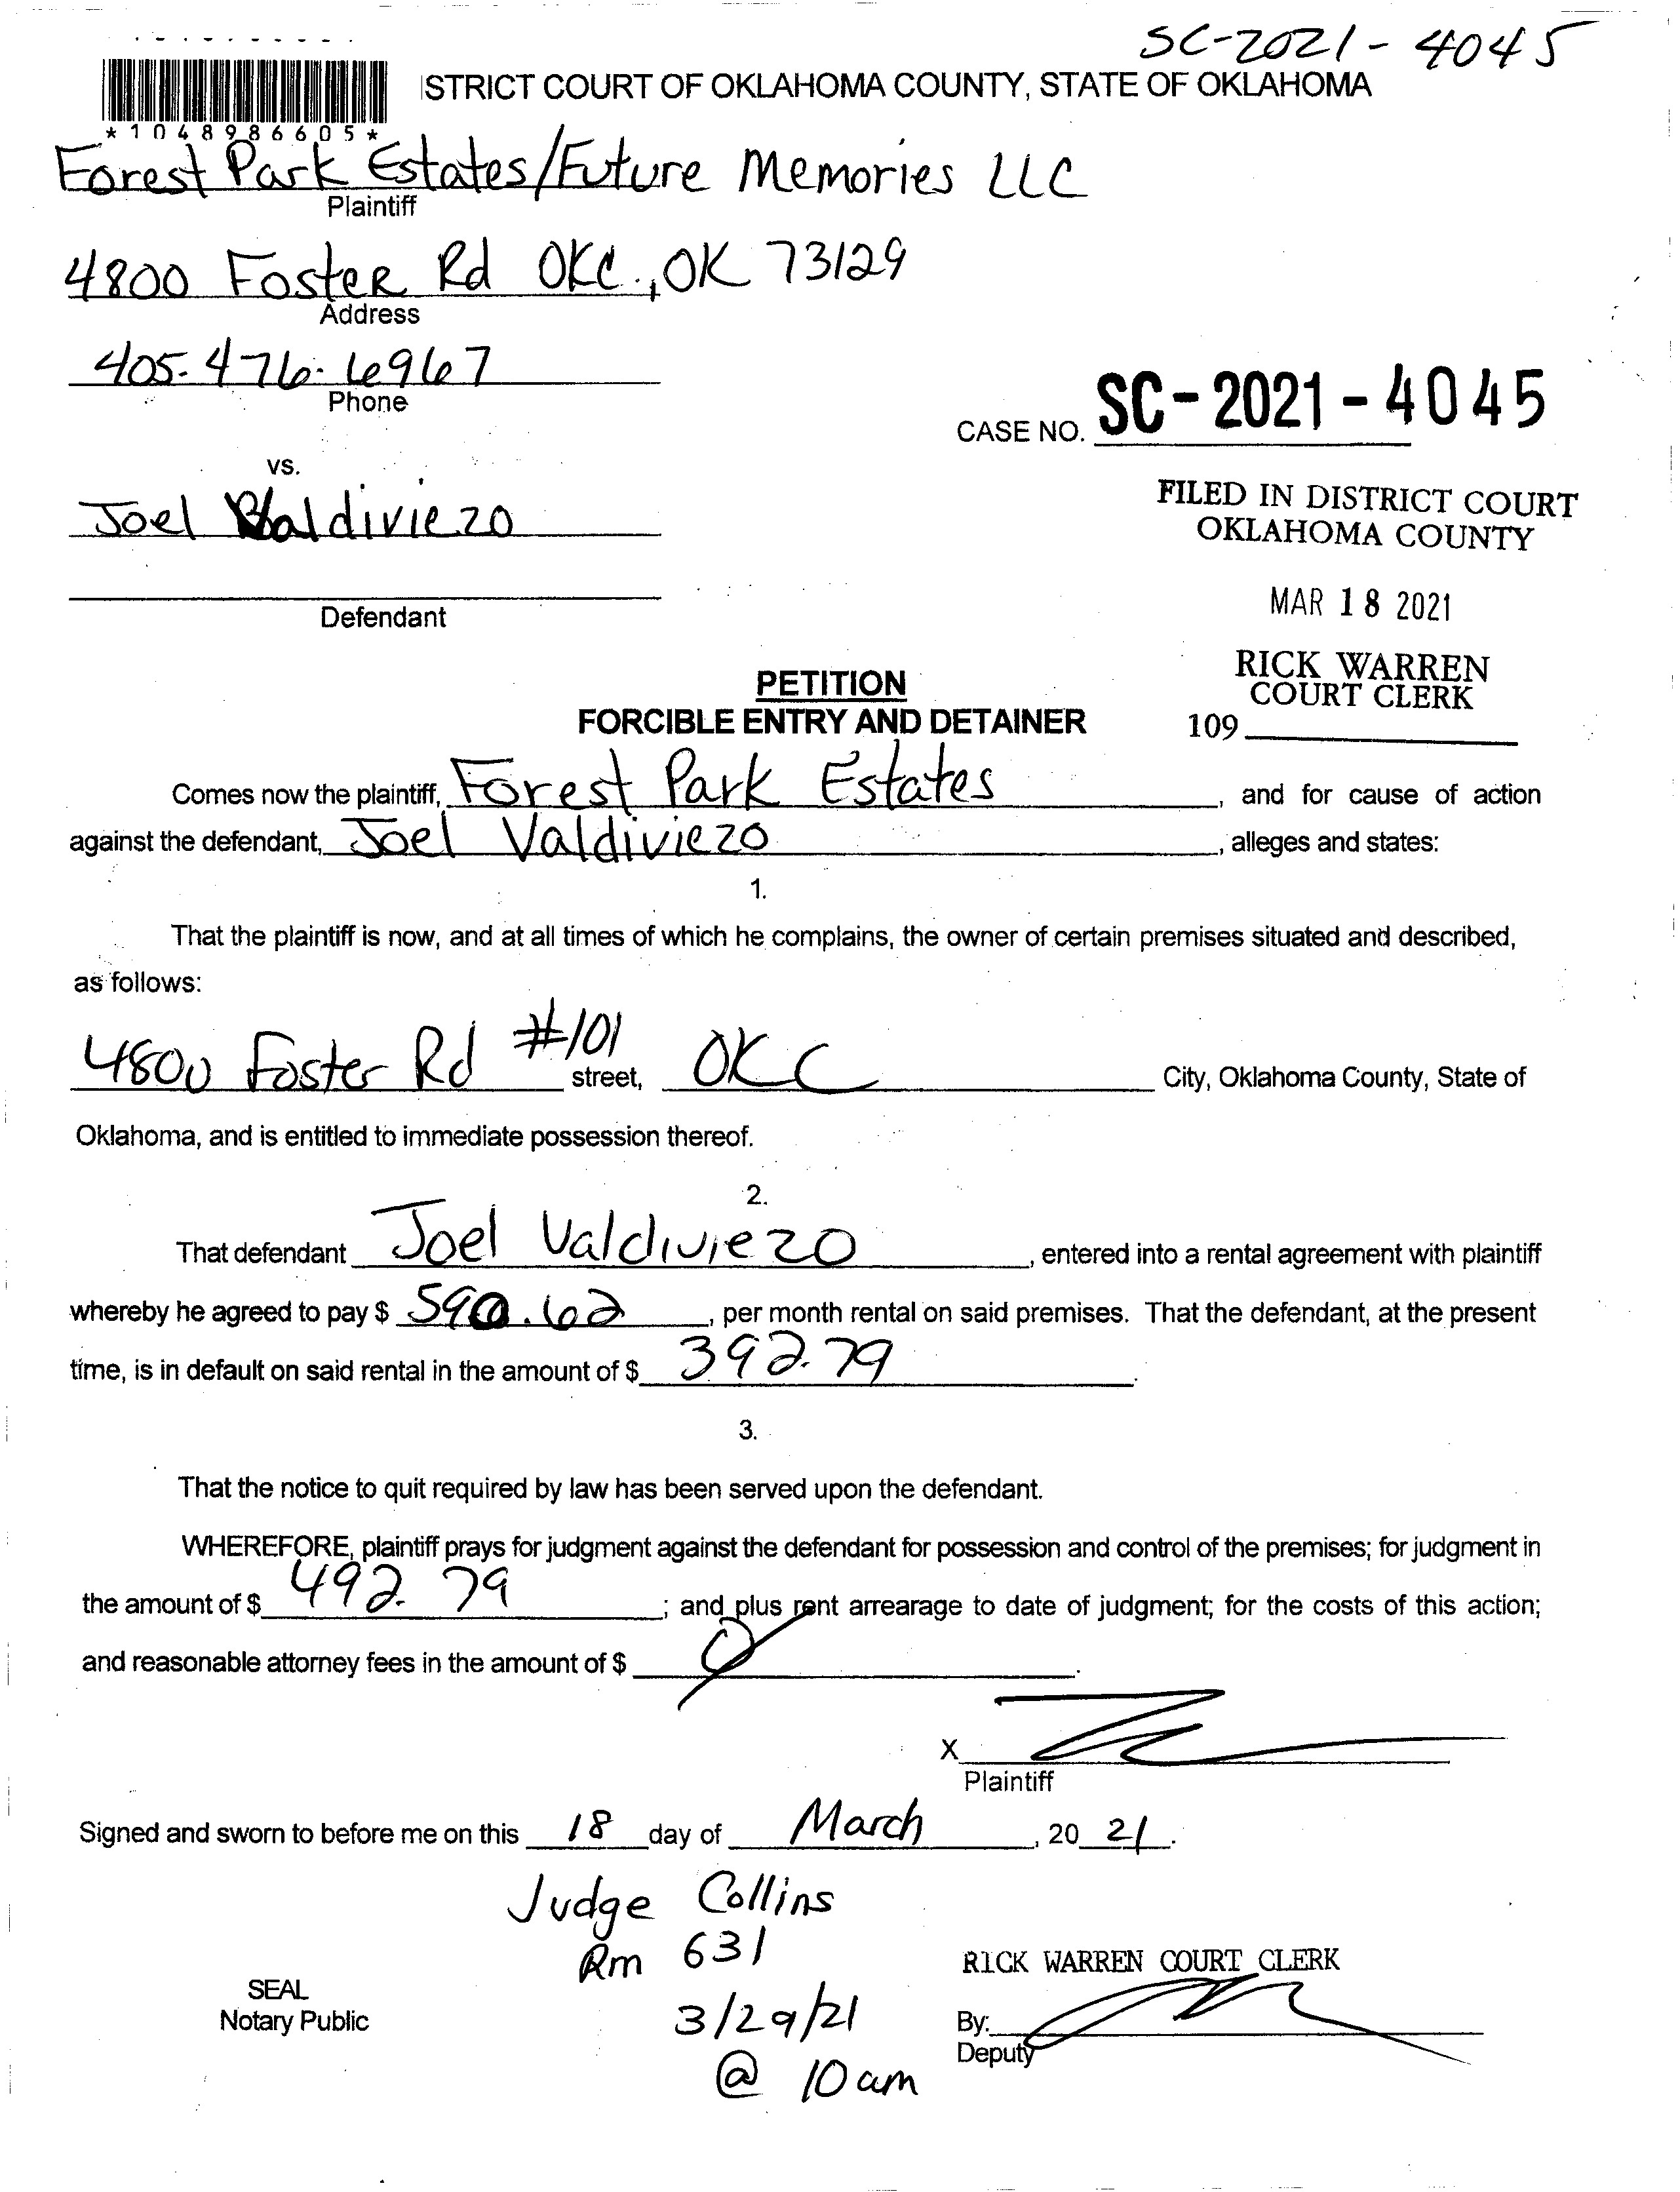 SC-2021-4045
ISTRICT COURT OF OKLAHOMA COUNTY, STATE OF OKLAHOMA
*1048986605*
Forest Park Estates/Future Memories LLC
Plaintiff
4800 Foster Rd OKC., OK 73129
Address
405-476-6967
Phone
CASE NO. SC-2021-4045
vs.
Joel Valdiviezo
FILED IN DISTRICT COURT
OKLAHOMA COUNTY
Defendant
MAR 18 2021
RICK WARREN
COURT CLERK
109
PETITION
FORCIBLE ENTRY AND DETAINER
Comes now the plaintiff, Forest Park Estates, and for cause of action
against the defendant, Joel Valdiviezo, alleges and states:
1.
That the plaintiff is now, and at all times of which he complains, the owner of certain premises situated and described,
as follows:
4800 Foster Rd #101 street, OKC City, Oklahoma County, State of
Oklahoma, and is entitled to immediate possession thereof.
2.
That defendant Joel Valdiviezo, entered into a rental agreement with plaintiff
whereby he agreed to pay $ , per month rental on said premises. That the defendant, at the present
time, is in default on said rental in the amount of $ 392.79.
3.
That the notice to quit required by law has been served upon the defendant.
WHEREFORE, plaintiff prays for judgment against the defendant for possession and control of the premises; for judgment in
the amount of $ 492.79; and plus rent arrearage to date of judgment; for the costs of this action;
and reasonable attorney fees in the amount of $ Ø.
X
Plaintiff
Signed and sworn to before me on this 18 day of March, 20 21.
Judge Collins
Rm 631
3/29/21
@ 10am
SEAL
Notary Public
RICK WARREN COURT CLERK
By:
Deputy